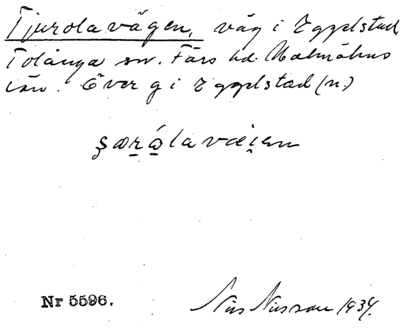 Tjurolavägen, väg i Eggelstad
Tolånga sn. Färs hd. Malmöhus
län. Över g i Eggelstad (n)
ʂωrålavæi̯en
Nr 5596.
Nils Nilsson 1934.